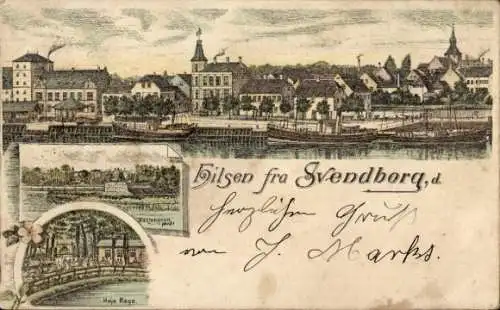 Hilsen fra Svendborg, d.
herzlichen Gruß
von J. Marks.
Høje Bøge.